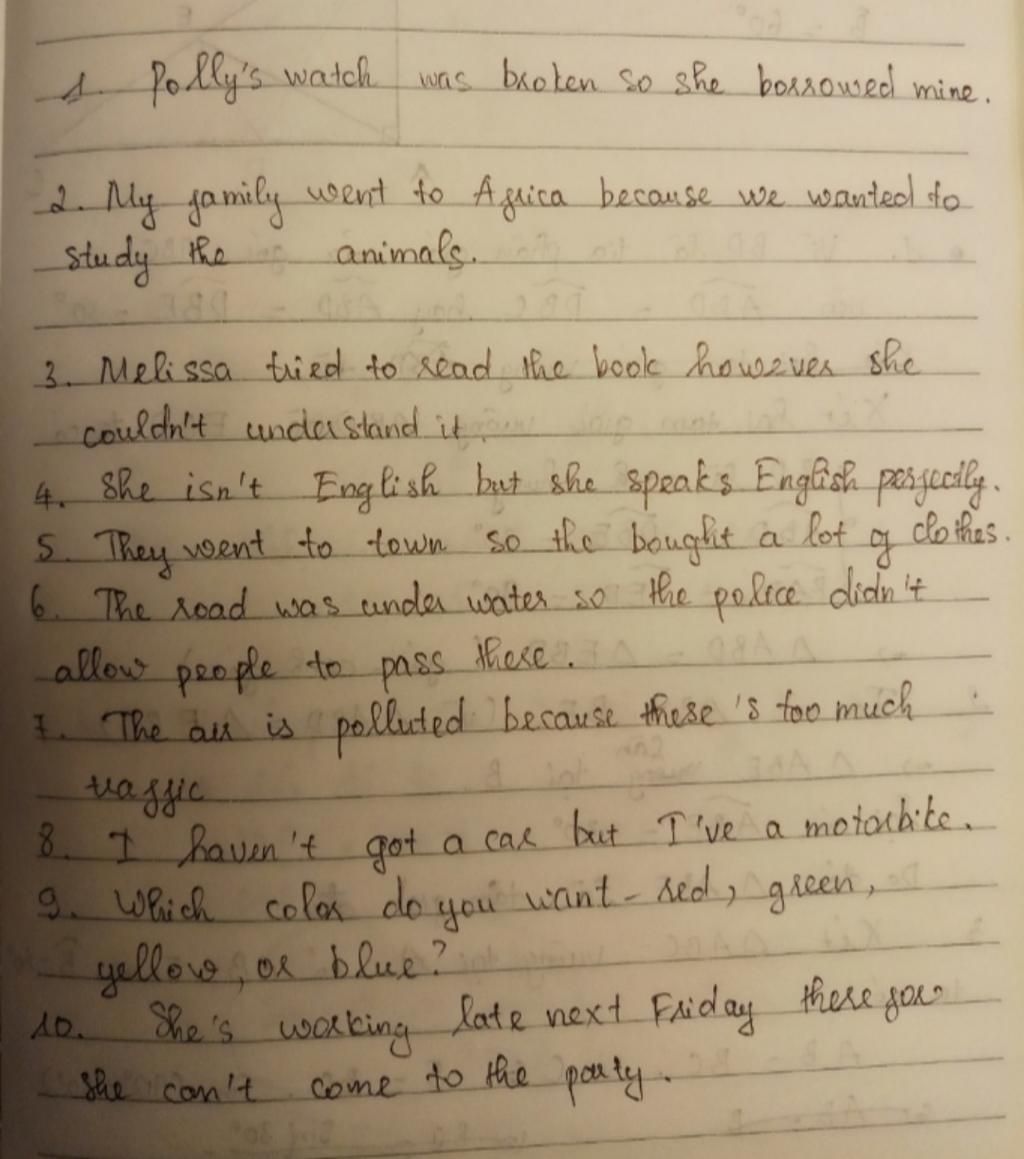 1. Polly's watch was broken so she borrowed mine.
2. My family went to Africa because we wanted to
study the animals.
3. Melissa tried to read the book however she
couldn't understand it.
4. She isn't English but she speaks English perfectly.
5. They went to town so the bought a lot of clothes.
6. The road was under water so the police didn't
allow people to pass there.
7. The air is polluted because there's too much
traffic
8. I haven't got a car but I've a motorbike.
9. Which color do you want - red, green,
yellow, or blue?
10. She's working late next Friday therefore
she can't come to the party.